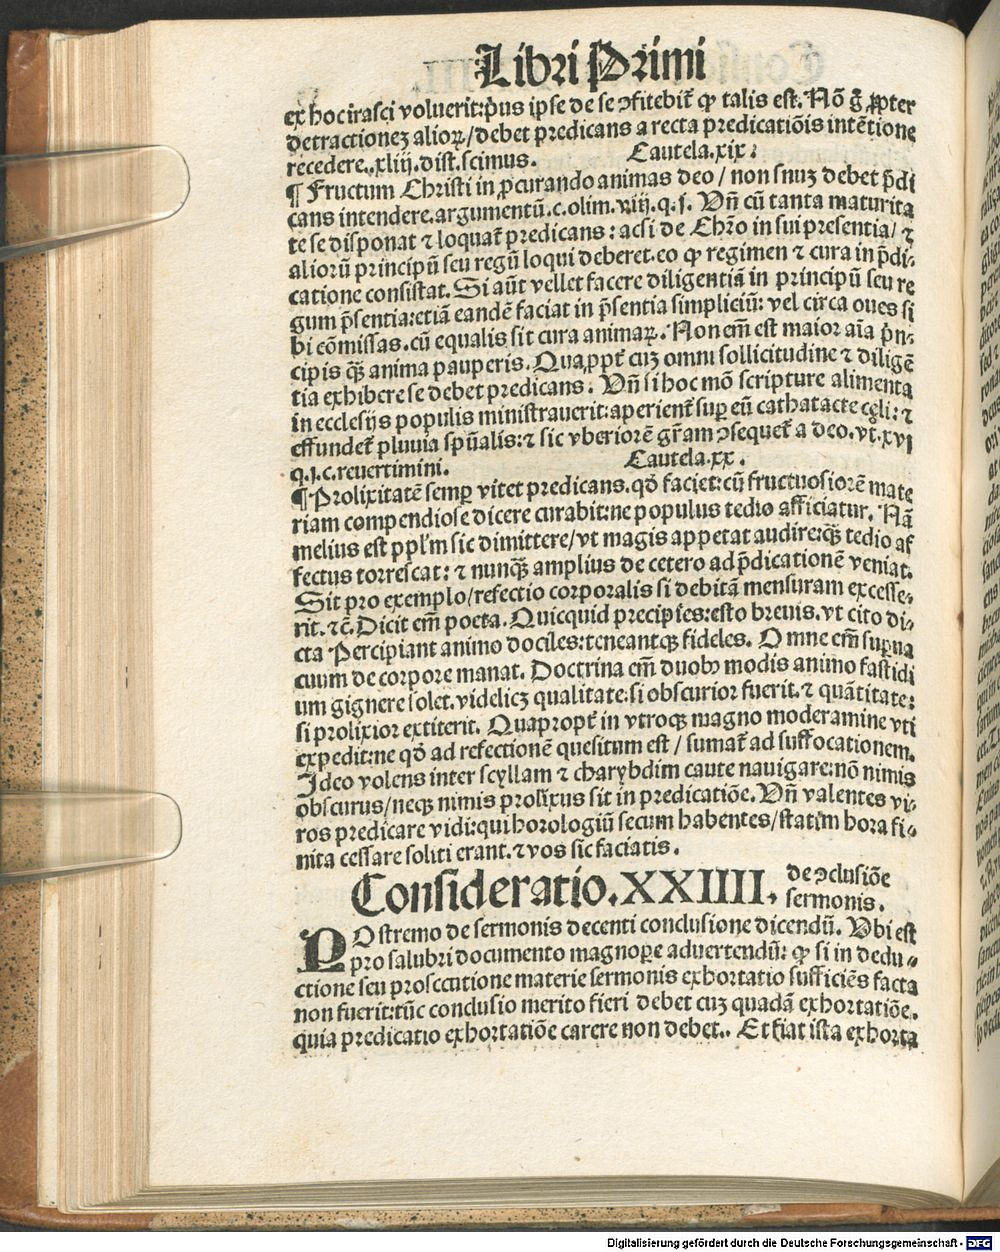 Libri Primi
ex hoc irasci voluerit: p̄us ipse de se ꝯfitebit̄ ꝙ talis est. Nō ḡ ꝓpter
detractionez alioꝝ / debet predicans a recta predicatiōis intētione
recedere. .xliij. dist. scimus. Cautela .xix:
¶ Fructum Christi in ꝓcurando animas deo / non suuz debet p̄di
cans intendere. argumentū .c. olim. viij. q. j. Vn̄ cū tanta maturita
te se disponat ⁊ loquat̄ predicans: acsi de Chr̄o in sui presentia / ⁊
aliorū principū seu regū loqui deberet. eo ꝙ regimen ⁊ cura in p̄di-
catione consistat. Si aūt vellet facere diligentiā in principū seu re
gum p̄sentia: etiā eandē faciat in p̄sentia simpliciū: vel circa oues si
bi cōmissas. cū equalis sit cura animaꝝ. Non em̄ est maior aīa p̄n-
cipis qȝ̄ anima pauperis. Quaꝓpt̄ cuz omni sollicitudine ⁊ diligē
tia exhibere se debet predicans. Vn̄ si hoc mō scripture alimenta
in ecclesijs populis ministrauerit: aperient̄ sup̱ eū cathatacte cęli: ⁊
effundet̄ pluuia spūalis: ⁊ sic vberiorē gr̄am ꝯsequet̄ a deo. vt. xvj
q. j. c. reuertimini. Cautela .xx.
¶ Prolixitatē semp̱ vitet predicans. qd̄ faciet: cū fructuosiorē mate
riam compendiose dicere curabit: ne populus tedio afficiatur. Nā
melius est ppl'm sic dimittere / vt magis appetat audire: qȝ̄ tedio af
fectus torrescat: ⁊ nunqȝ̄ amplius de cetero ad p̄dicationē veniat.
Sit pro exemplo / refectio corporalis si debitā mensuram excesse-
rit. ⁊c̄. Dicit em̄ poeta. Quicquid precipies: esto breuis. vt cito di-
cta Percipiant animo dociles: teneantqȝ fideles. Omne em̄ sup̱ua
cuum de corpore manat. Doctrina em̄ duobꝰ modis animo fastidi
um gignere solet. videlicȝ qualitate: si obscurior fuerit. ⁊ quātitate:
si prolixior extiterit. Quapropt̄ in vtroqȝ magno moderamine vti
expedit: ne qd̄ ad refectionē quesitum est / sumat̄ ad suffocationem.
Ideo volens inter scyllam ⁊ charybdim caute nauigare: nō nimis
obscurus / neqȝ nimis prolixus sit in predicatiōe. Vn̄ valentes vi-
ros predicare vidi: qui horologiū secum habentes / statim hora fi-
nita cessare soliti erant. ⁊ vos sic faciatis.
Consideratio. XXIIII. de ꝯclusiōe
sermonis.
POstremo de sermonis decenti conclusione dicendū. Vbi est
pro salubri documento magnop̱e aduertendū: ꝙ si in dedu-
ctione seu prosecutione materie sermonis exhortatio sufficiēs facta
non fuerit: tūc conclusio merito fieri debet cuz quadā exhortatiōe.
quia predicatio exhortatiōe carere non debet. . Et fiat ista exhorta
Digitalisierung gefördert durch die Deutsche Forschungsgemeinschaft - DFG